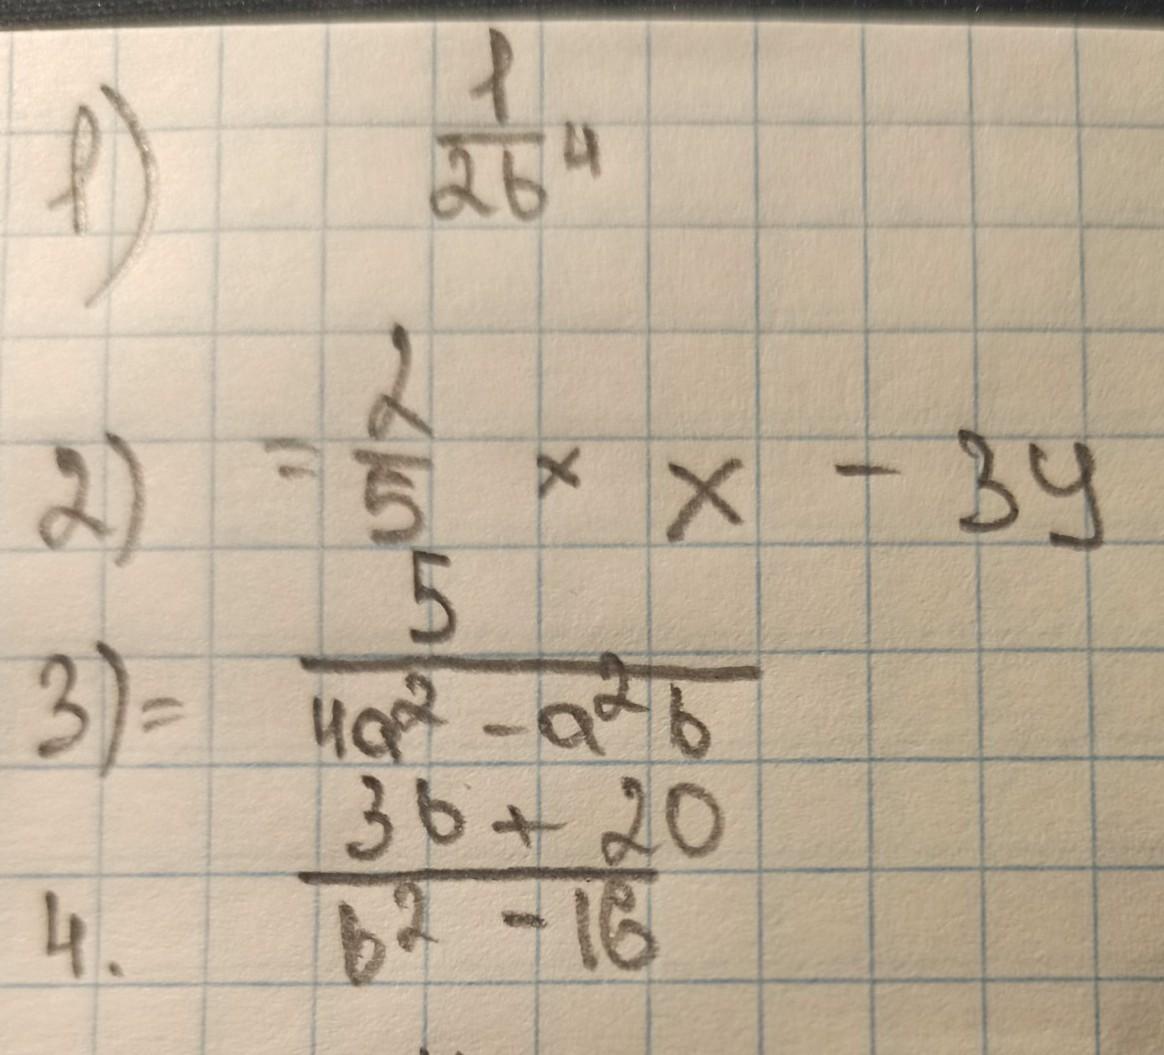 1) 1/2b⁴
2) = 2/5 × x - 3y
3) = 5/4a² - a²b
4. 3b + 20/b² - 16